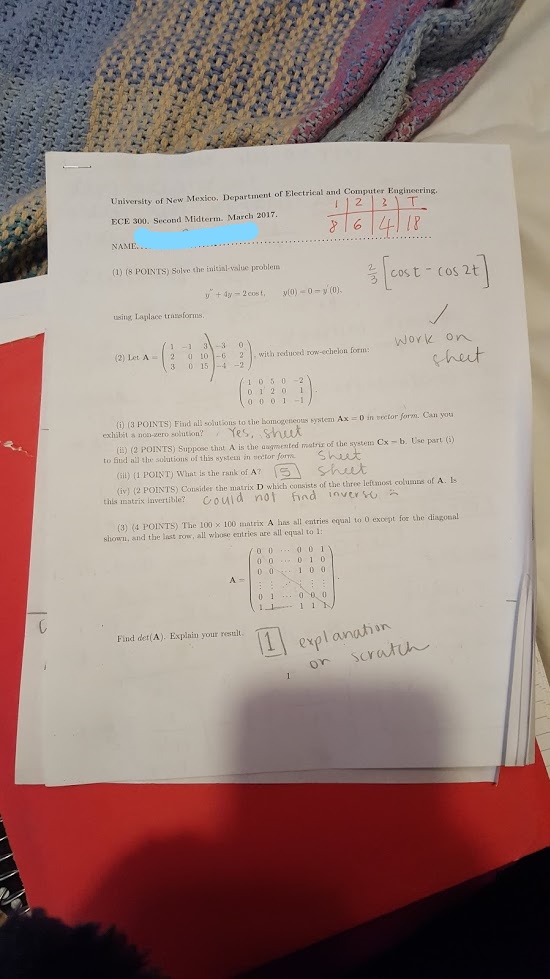 University of New Mexico. Department of Electrical and Computer Engineering.
ECE 300. Second Midterm. March 2017.
1 2 3 T
8 6 4 18
NAME:
(1) (8 POINTS) Solve the initial-value problem
y'' + 4y = 2 cos t, y(0) = 0 = y'(0).
2/3 [cos t - cos 2t]
using Laplace transforms.
✓
work on
sheet
(2) Let A = ( 1 -1 3 -3 0
2 0 10 -6 2
3 0 15 -4 -2 ), with reduced row-echelon form:
( 1 0 5 0 -2
0 1 2 0 1
0 0 0 1 -1 ).
(i) (3 POINTS) Find all solutions to the homogeneous system Ax = 0 in vector form. Can you
exhibit a non-zero solution? Yes, sheet
(ii) (2 POINTS) Suppose that A is the augmented matrix of the system Cx = b. Use part (i)
to find all the solutions of this system in vector form. Sheet
(iii) (1 POINT) What is the rank of A? sheet
(iv) (2 POINTS) Consider the matrix D which consists of the three leftmost columns of A. Is
this matrix invertible? could not find inverse
(3) (4 POINTS) The 100 × 100 matrix A has all entries equal to 0 except for the diagonal
shown, and the last row, all whose entries are all equal to 1:
A = ( 0 0 ⋯ 0 0 1
0 0 ⋯ 0 1 0
0 0 ⋯ 1 0 0
⋮ ⋮ ⋮ ⋮ ⋮
0 1 ⋯ 0 0 0
1 1 ⋯ 1 1 1 ).
Find det(A). Explain your result.
1 explanation
on scratch
1